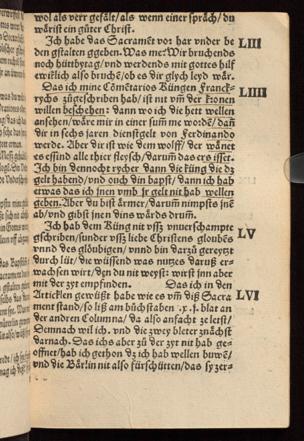 wol als verr gefält/als wenn einer spräch/du
wärist ein güter Christ.
Ich habe das Sacramēt vor har vnder be LIII
den gstalten ggeben. Was me: Wir bruchends
noch hüttbytag/vnd werdends mit gottes hilf
ewiklich also bruchē/ob es dir glych leyd wär.
Das ich mine Cōmētarios Küngten Franck- LIIII
rychs zůgeschriben hab/ist nit vm̄ der kronen
willen beschehen: dann wo ich die hett wellen
ansehen/wäre mir in einer sum̄ me wordē/dañ
dir in sechs jaren dienstgelt von Ferdinando
werde. Aber dir ist wie dem wolff/der wänet
es essind alle thier fleysch/darum̄ das ers isset.
Ich bin dennocht rycher dann die küng die dz
gelt habend/vnd ouch din bapst/dann ich hab
etwas das ich jnen vmb jr gelt nit hab wellen
geben. Aber du bist ärmer/darum̄ nimpsts jnē
ab/vnd gibst jnen dins wārds drum̄.
Ich hab dem Küng nit vsz vnuerschampte LV
gschriben/sunder vsz liebe Christens gloubēs
vnd des glöubigen/vnnd bin darzů gereytzt
durch lüt/die wüssend was nutzes daruß er-
wachsen wirt/dz̄ du nit weyst: wirst jnn aber
mit der zyt empfinden. Das ich in den
Articklen gewüßt habe wie es vm̄ diß Sacra LVI
ment stand/so liß am bůchstaben .x.f. blat an
der andren Columna/da also anfacht ze letst/
Demnach wil ich. vnd die zwey bletter nächst
darnach. Das ichs aber zů der zyt nit hab ge-
offnet/hab ich gethon dz ich hab wellen buwē/
vnd die Bärlin nit also fürschütten/das sy zer-